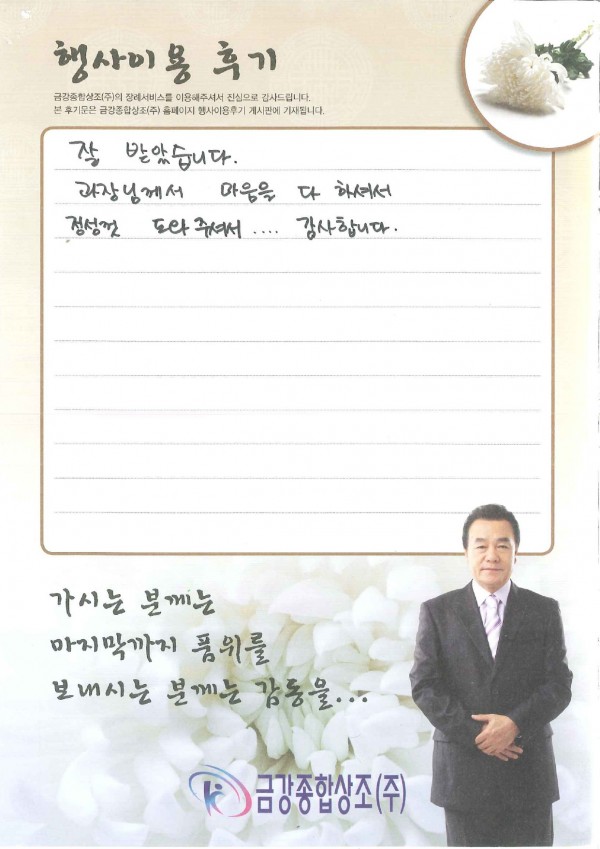 행사이용 후기
금강종합상조(주)의 장례서비스를 이용해주셔서 진심으로 감사드립니다.
본 후기문은 금강종합상조(주) 홈페이지 행사이용후기 게시판에 기재됩니다.
잘 받았습니다.
과장님께서 마음을 다 하셔서
정성껏 도와주셔서 .... 감사합니다.
가시는 분께는
마지막까지 품위를
보내시는 분께는 감동을...
금강종합상조(주)